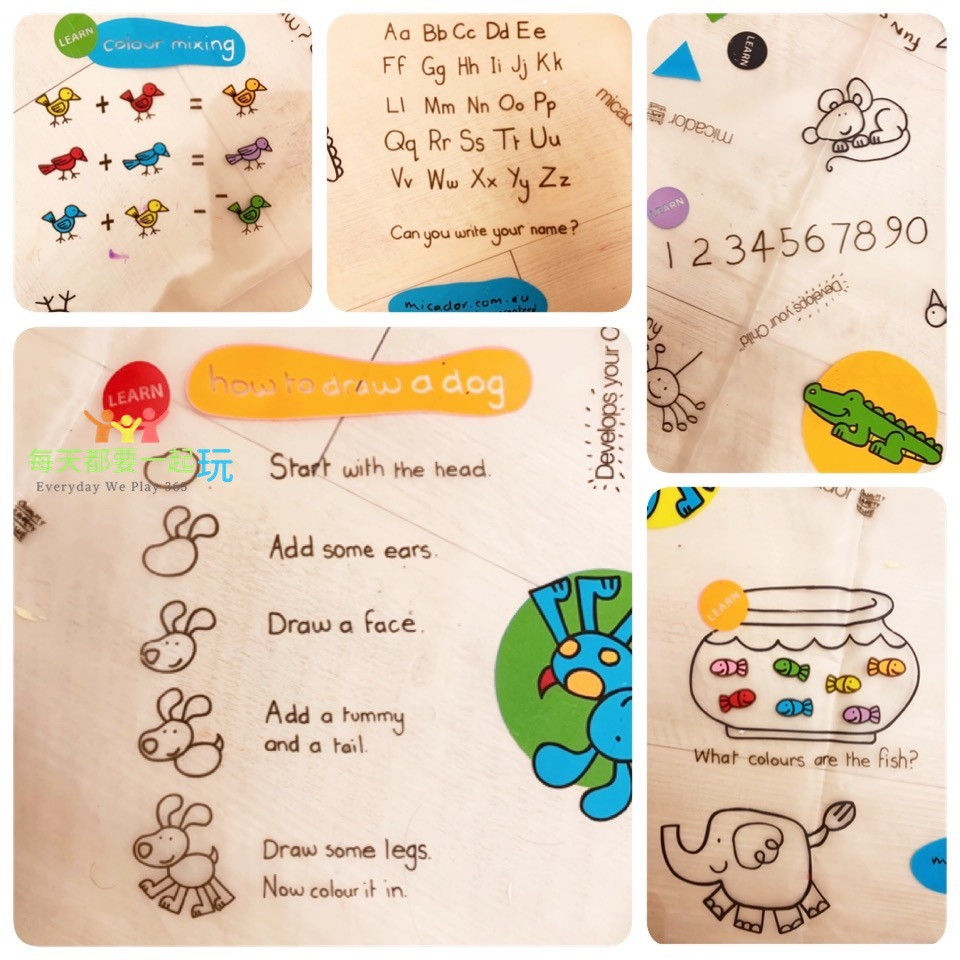 LEARN
colour mixing
+ =
+ =
+ -
Aa Bb Cc Dd Ee
Ff Gg Hh Ii Jj Kk
Ll Mm Nn Oo Pp
Qq Rr Ss Tt Uu
Vv Ww Xx Yy Zz
Can you write your name?
micador.com.eu
micador
LEARN
micador
LEARN
1 2 3 4 5 6 7 8 9 0
Develops your Child
LEARN
how to draw a dog
Develops your C
每天都要一起玩
Everyday We Play 365
Start with the head.
Add some ears.
Draw a face.
Add a tummy
and a tail.
Draw some legs.
Now colour it in.
LEARN
What colours are the fish?